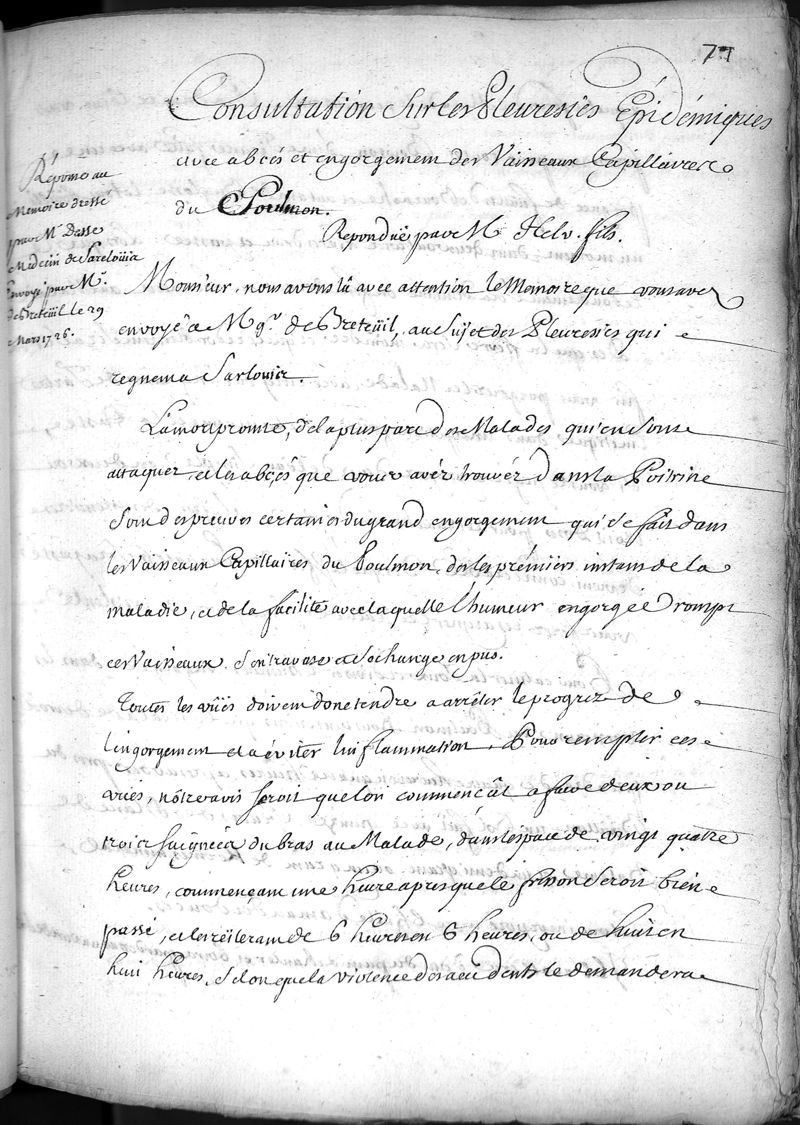 77
Consultation Sur les Pleuresies Epidémiques
avec abcés et engorgement des Vaisseaux Capillaires
du Poulmon.
Repondüe par M Helv. fils.
Réponse au
Memoire dressé
par Mr Desse
Medecin de Sarelouis
Envoyé par Mr.
de Breteüil le 29
Mars 1726.
Monsieur, nous avons lû avec attention le Memoire que vous avez
envoyé a Mgr. de Breteüil, au Sujet des Pleuresies qui
regnent a Sarlouis.
La mort promte, de la plus part des Malades qui en sont
attaquez, et les abçés que vous avés trouvéz dans la Poitrine
Sont des preuves certaines du grand engorgement qui se fait dans
les Vaisseaux Capillaires du Poulmon, des les prémiers instans de la
maladie, et de la facilité avec laquelle l'humeur engorgéé rompt
ces Vaisseaux s'extravase et se change en pus.
Toutes les vûës doivent donc tendre a arrêter le progrez de
l'ingorgement et a éviter l'inflammation. Pour remplir ces
vües, nôtre avis seroit que l'on commençât a faire deux ou
trois saignéés du bras au Malade, dans l'espace de vingt quatre
heures, commençant une heure apres que le frisson seroit bien
passé, et les réïterant de 6 heures en 6 heures, ou de huit en
huit heures, selon que la violence des accidents le demandera